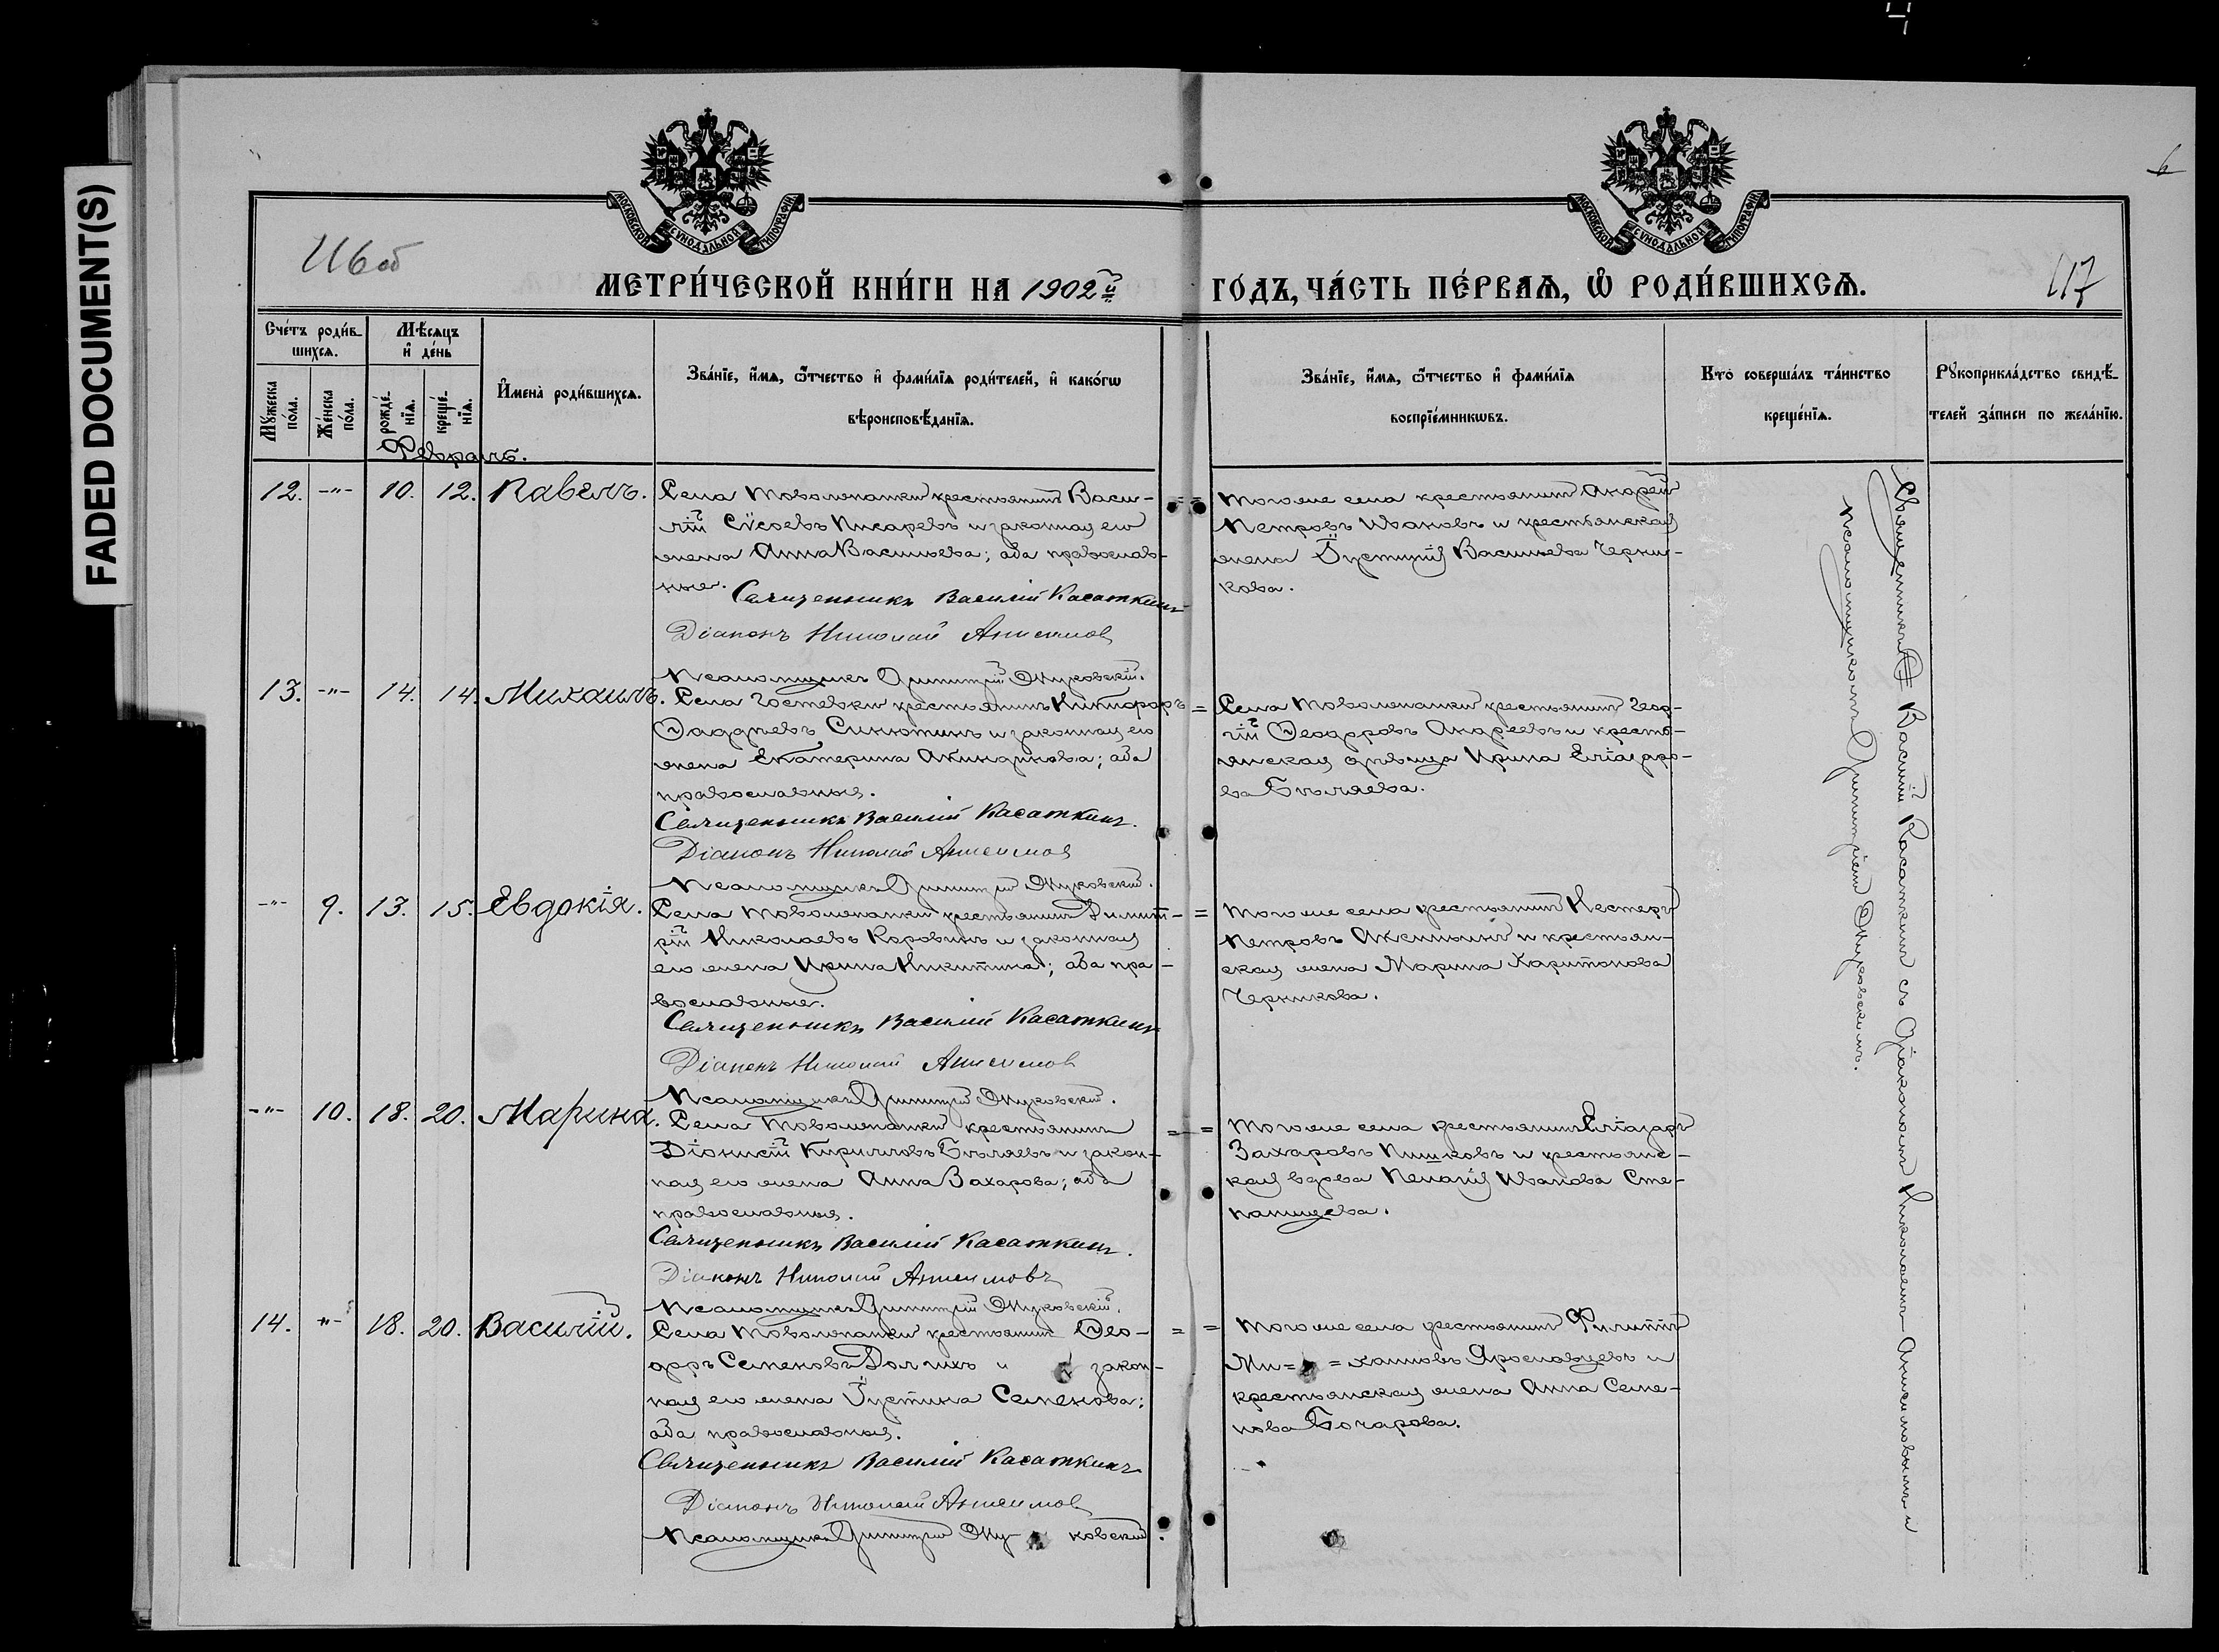 FADED DOCUMENT(S)
6
116 об
117
МОСКОВСКОЙ СѴНОДАЛЬНОЙ ТИПОГРАФІИ
МОСКОВСКОЙ СѴНОДАЛЬНОЙ ТИПОГРАФІИ
МЕТРИ́ЧЕСКОЙ КНИ́ГИ НА 1902й ГО́ДЪ, ЧА́СТЬ ПЕ́РВАѦ, Ѡ҆ РОДИ́ВШИХСѦ.
Сче́тъ роди́в-
шихсѧ.
Мꙋ́жеска по́ла.
Же́нска по́ла.
Мѣ́сѧцъ
и҆ де́нь
рожде́-
нїѧ.
креще́-
нїѧ.
И҆мена̀ роди́вшихсѧ.
Зва́нїе, и҆́мѧ, ѻ҆́тчество и҆ фами́лїѧ роди́телей, и҆ како́гѡ
вѣроисповѣ́данїѧ.
Зва́нїе, и҆́мѧ, ѻ҆́тчество и҆ фами́лїѧ
воспрїе́мникѡвъ.
Кто̀ соверша́лъ та́инство
креще́нїѧ.
Рꙋкоприкла́дство свидѣ́-
телей за́писи по жела́нїю.
Февраль.
12. -"- 10. 12. Павелъ.
Села Товолжанки крестьянинъ Васи-
лій Сѵсоевъ Писаревъ и законная его
жена Анна Васильева; оба православ-
ные.
Священникъ Василій Касаткинъ
Діаконъ Николай Анисимов
Псаломщикъ Димитрій Жуковскій.
Того же села крестьянинъ Андрей
Петровъ Ивановъ и крестьянская
жена Іустинія Васильева Черни-
кова.
13. -"- 14. 14. Михаилъ.
Села Гостевки крестьянинъ Никифоръ
Фаддѣевъ Синютинъ и законная его
жена Екатерина Акиндинова; оба
православные.
Священникъ Василій Касаткинъ.
Діаконъ Николай Анисимов
Псаломщикъ Димитрій Жуковскій.
Села Товолжанки крестьянинъ Геор-
гій Ѳеодоровъ Андреевъ и кресть-
янская дѣвица Ирина Еліазаро-
ва Бѣляева.
-"- 9. 13. 15. Евдокія.
Села Товолжанки крестьянинъ Димит-
рій Николаевъ Коровинъ и законная
его жена Ирина Никитина; оба пра-
вославные.
Священникъ Василій Касаткинъ
Діаконъ Николай Анисимов
Псаломщикъ Димитрій Жуковскій.
Того же села крестьянинъ Нестеръ
Петровъ Аксининъ и крестьян-
ская жена Марина Харитонова
Черникова.
-"- 10. 18. 20. Марина.
Села Товолжанки крестьянинъ
Діонисій Кирилловъ Бѣляевъ и закон-
ная его жена Анна Захарова; оба
православные.
Священникъ Василій Касаткинъ.
Діаконъ Николай Анисимовъ
Псаломщикъ Димитрій Жуковскій.
Того же села крестьянинъ Еліазаръ
Захаровъ Пишковъ и крестьянс-
кая вдова Пелагія Иванова Сте-
панищева.
14. -"- 18. 20. Василій.
Села Товолжанки крестьянинъ Ѳео-
доръ Семеновъ Долгихъ и закон-
ная его жена Іустина Семенова;
оба православные.
Священникъ Василій Касаткинъ
Діаконъ Николай Анисимов
Псаломщикъ Димитрій Жуковскій.
Того же села крестьянинъ Филиппъ
Ми= =хаиловъ Ярославцевъ и
крестьянская жена Анна Семе-
нова Бочарова.
Священникъ Василій Касаткинъ съ діакономъ Николаемъ Анисимовымъ и
псаломщикомъ Димитріемъ Жуковскимъ.